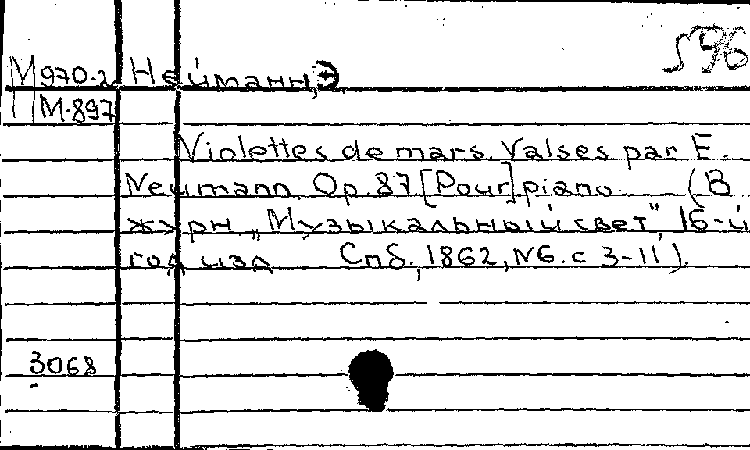 596
М970.2 Нейманн, Э
М-897
Violettes de mars. Valses par E.
Neumann. Op. 87 [Pour] piano (В
журн. „Музыкальный свет", 16-й
год изд Спб., 1862, N6. с 3-11).
3068